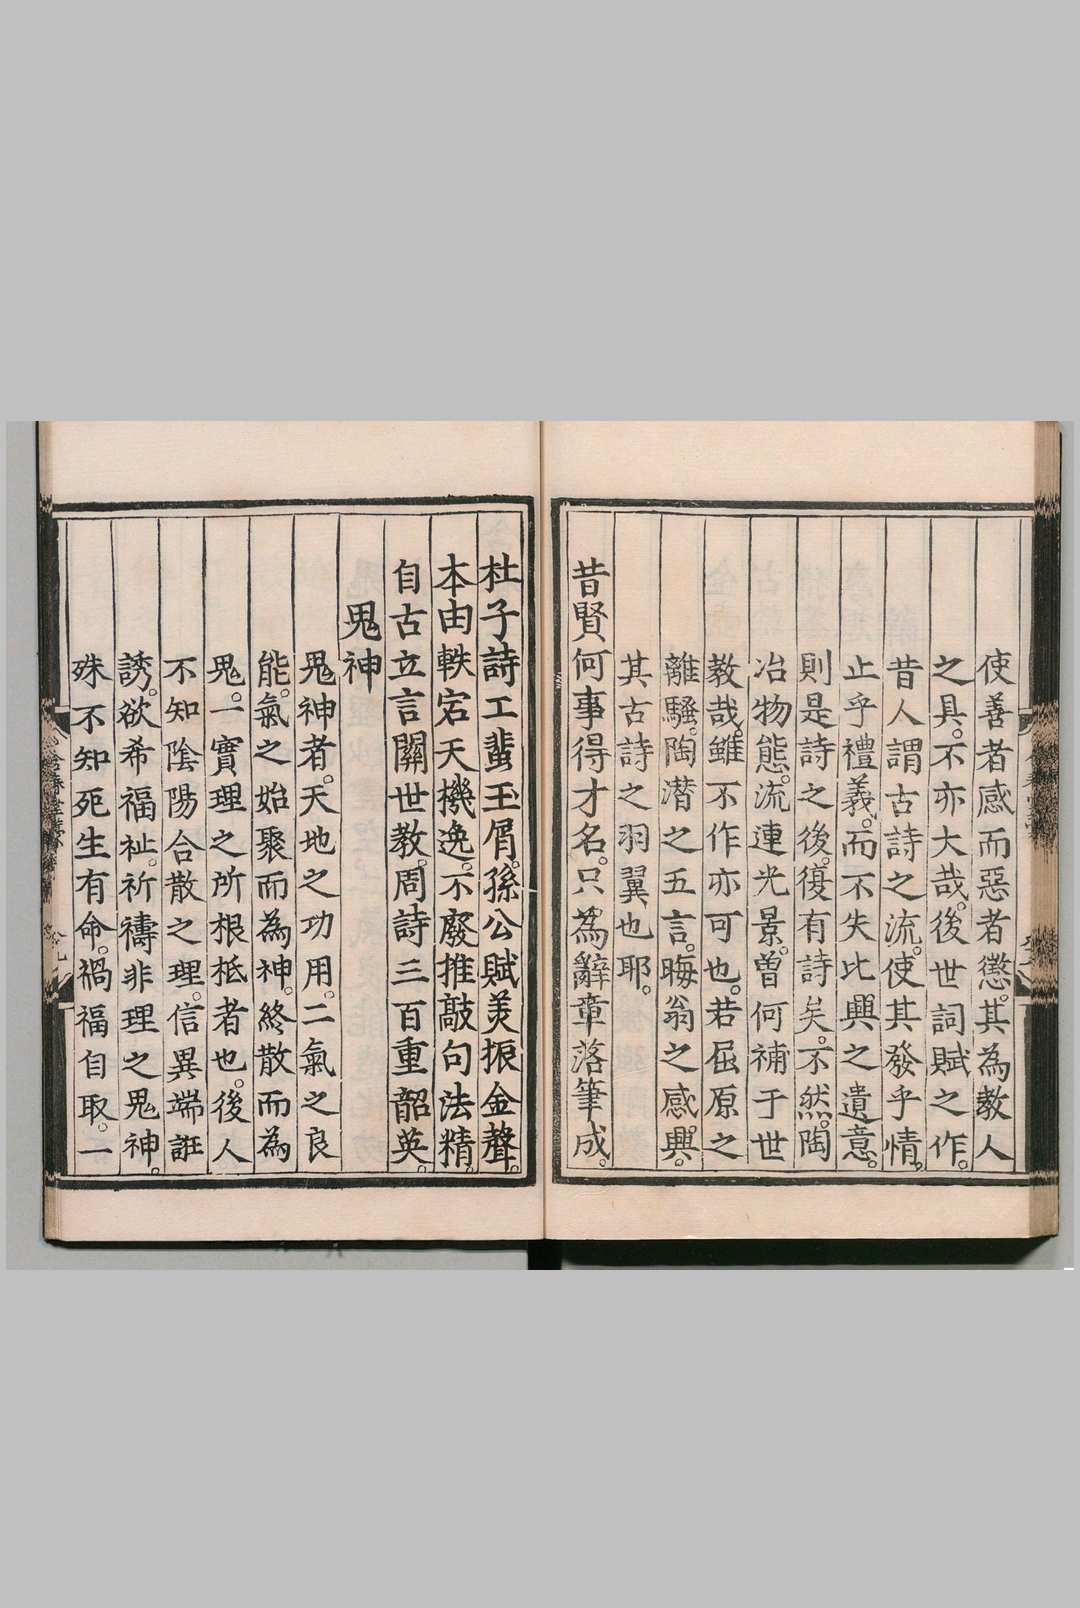 使善者感而惡者懲。其為教人
之具。不亦大哉。後世詞賦之作。
昔人謂古詩之流。使其發乎情。
止乎禮義。而不失比興之遺意。
則是詩之後。復有詩矣。不然。陶
冶物態。流連光景。曽何補于世
教哉。雖不作亦可也。若屈原之
離騷。陶潜之五言。晦翁之感興。
其古詩之羽翼也耶。
昔賢何事得才名。只為辭章落筆成。
杜子詩工蜚玉屑。孫公賦美振金聲。
本由軼宕天機逸。不廢推敲句法精。
自古立言關世教。周詩三百重韶英。
鬼神
鬼神者。天地之功用。二氣之良
能。氣之始聚而為神。終散而為
鬼。一實理之所根柢者也。後人
不知陰陽合散之理。信異端誑
誘。欲希福祉。祈禱非理之鬼神。
殊不知死生有命。禍福自取。一